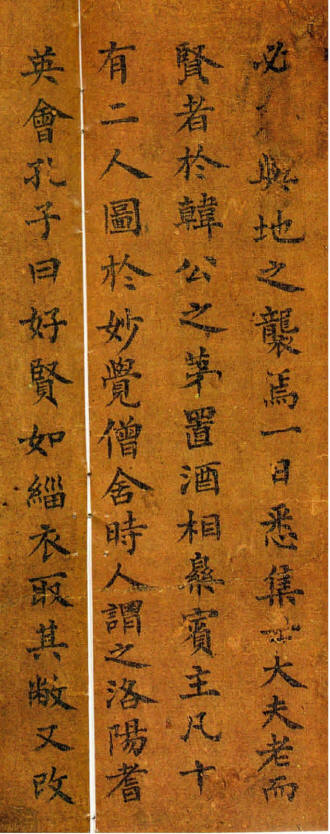 必與地之襲焉一日悉集士大夫老而
賢者於韓公之苐置酒相樂賓主凡十
有二人圖於妙覺僧舍時人謂之洛陽耆
英會孔子曰好賢如緇衣取其敝又改